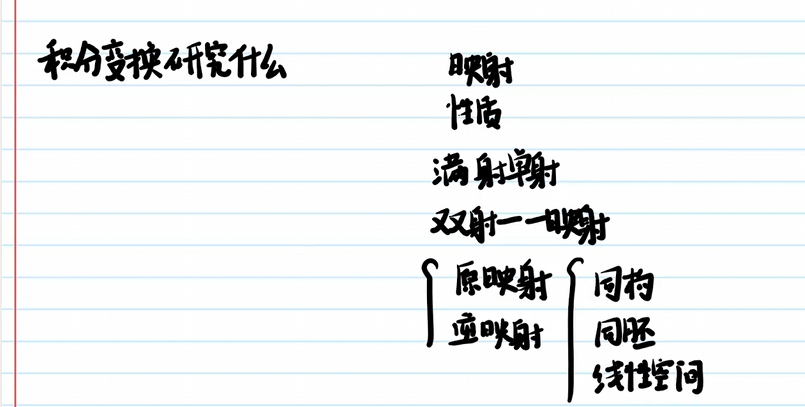 积分变换研究什么
映射
性质
满射单射
双射一一映射
原映射
映射
同构
同胚
线性空间